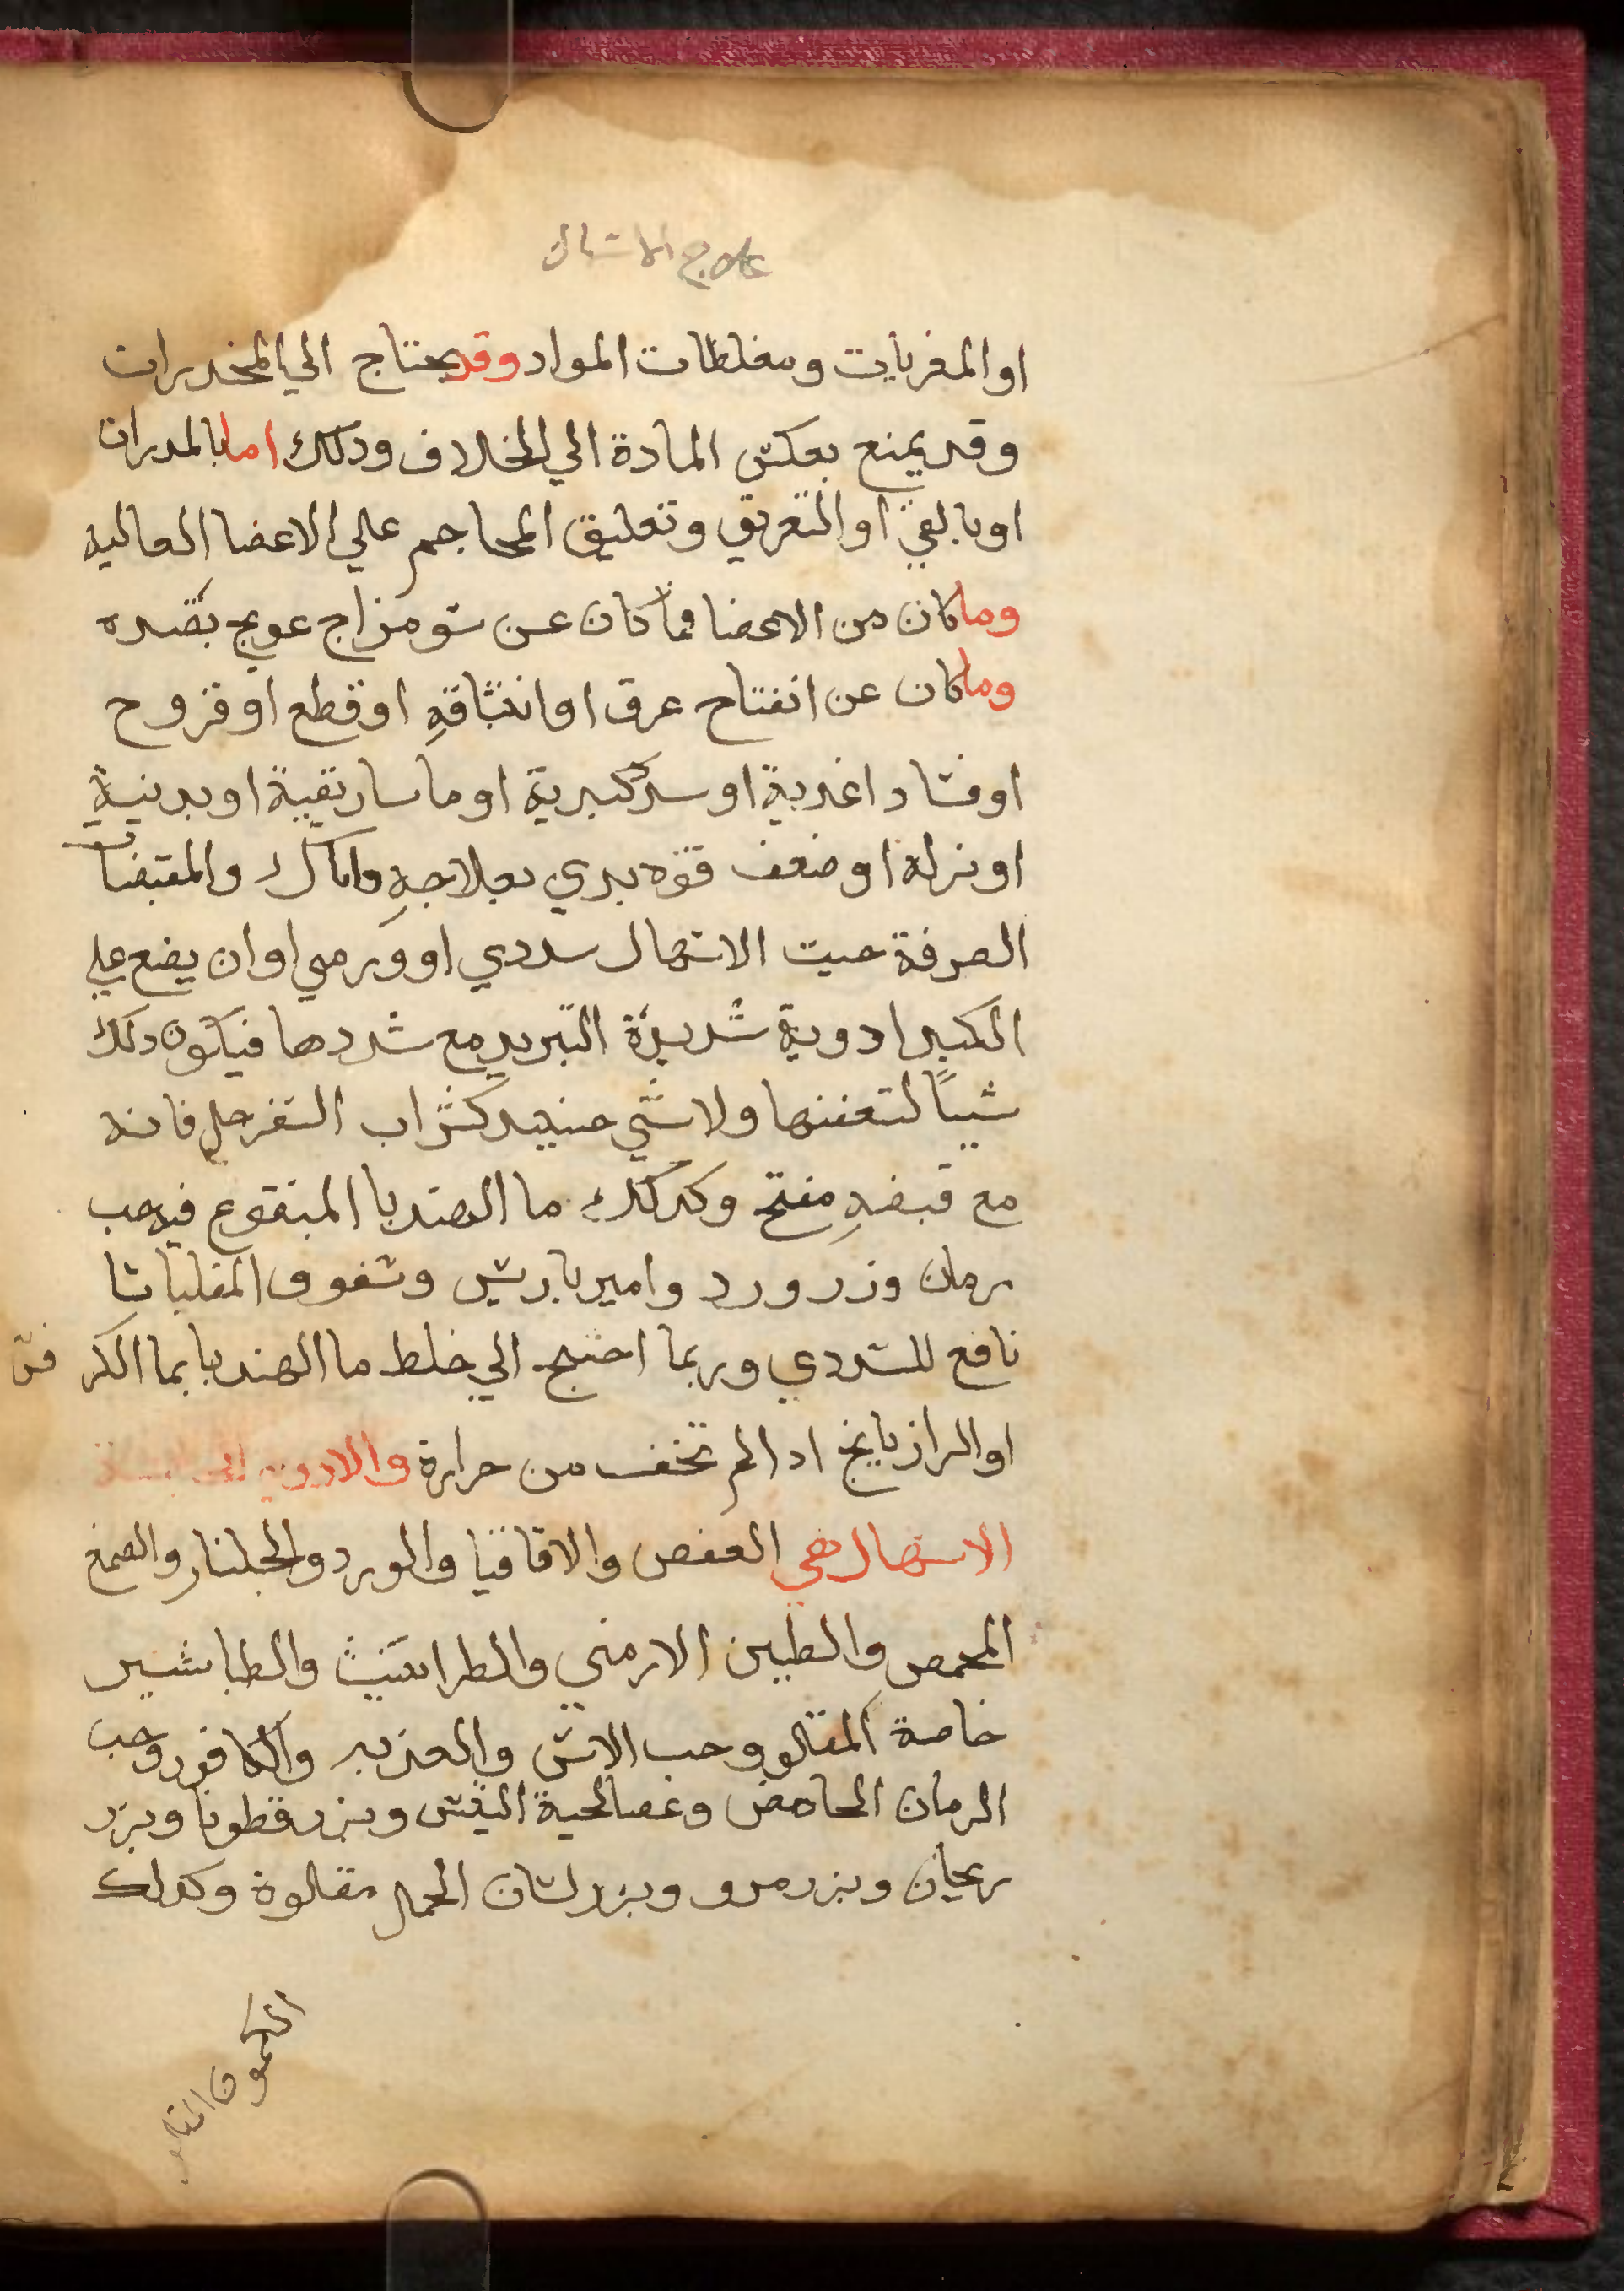 علاج الاسهال
او المغريات ومغلظات المواد وقد يحتاج الي المخدرات
وقد يمنع بعكس المادة الي الخلاف ودلك اما بالمدرات
او بالقي او التعريق وتعليق المحاجم علي الاعضا العالية
وما كان من الاعضا فما كان عن سو مزاج عولج بضده
وما كان عن انفتاح عرق او انبثاقهِ او قطع او قروح
او فساد اغدية او سدد كبدية او ماساريقية او بدنية
او نزلة او ضعف قوة بدي بعلاجهِ واياك والمقبضات
الصرفة حيت الاسهال سددي او ورمي او ان يضع علي
الكبد ادوية شديدة التبريد مع سددها فيكون دلك
سبباً لتعفنها ولا شي حينيد كشراب السفرجلي فانه
مع قبضهِ مفتح وكدلك ما الهندبا المنقوع فيه حب
رمان وزر ورد وامير باريس وسفوف المقلياثا
نافع للسددي وربما احتيج الي خلط ما الهندبا بما الكرفس
او الرازيانج ادا لم تخف من حرارة والادوية
الاسهال هي العفص والاقاقيا والورد والجلنار والصمغ
المحمص والطين الارمني والطراثيث والطباشير
خاصة المقلو وحب الاس والكافور وحب
الرمان الحامض وعصا لحية التيس وبزر قطونا وبزر
ريحان وبزر مرو وبزر لسان الحمل مقلوة وكدلك
الكمون